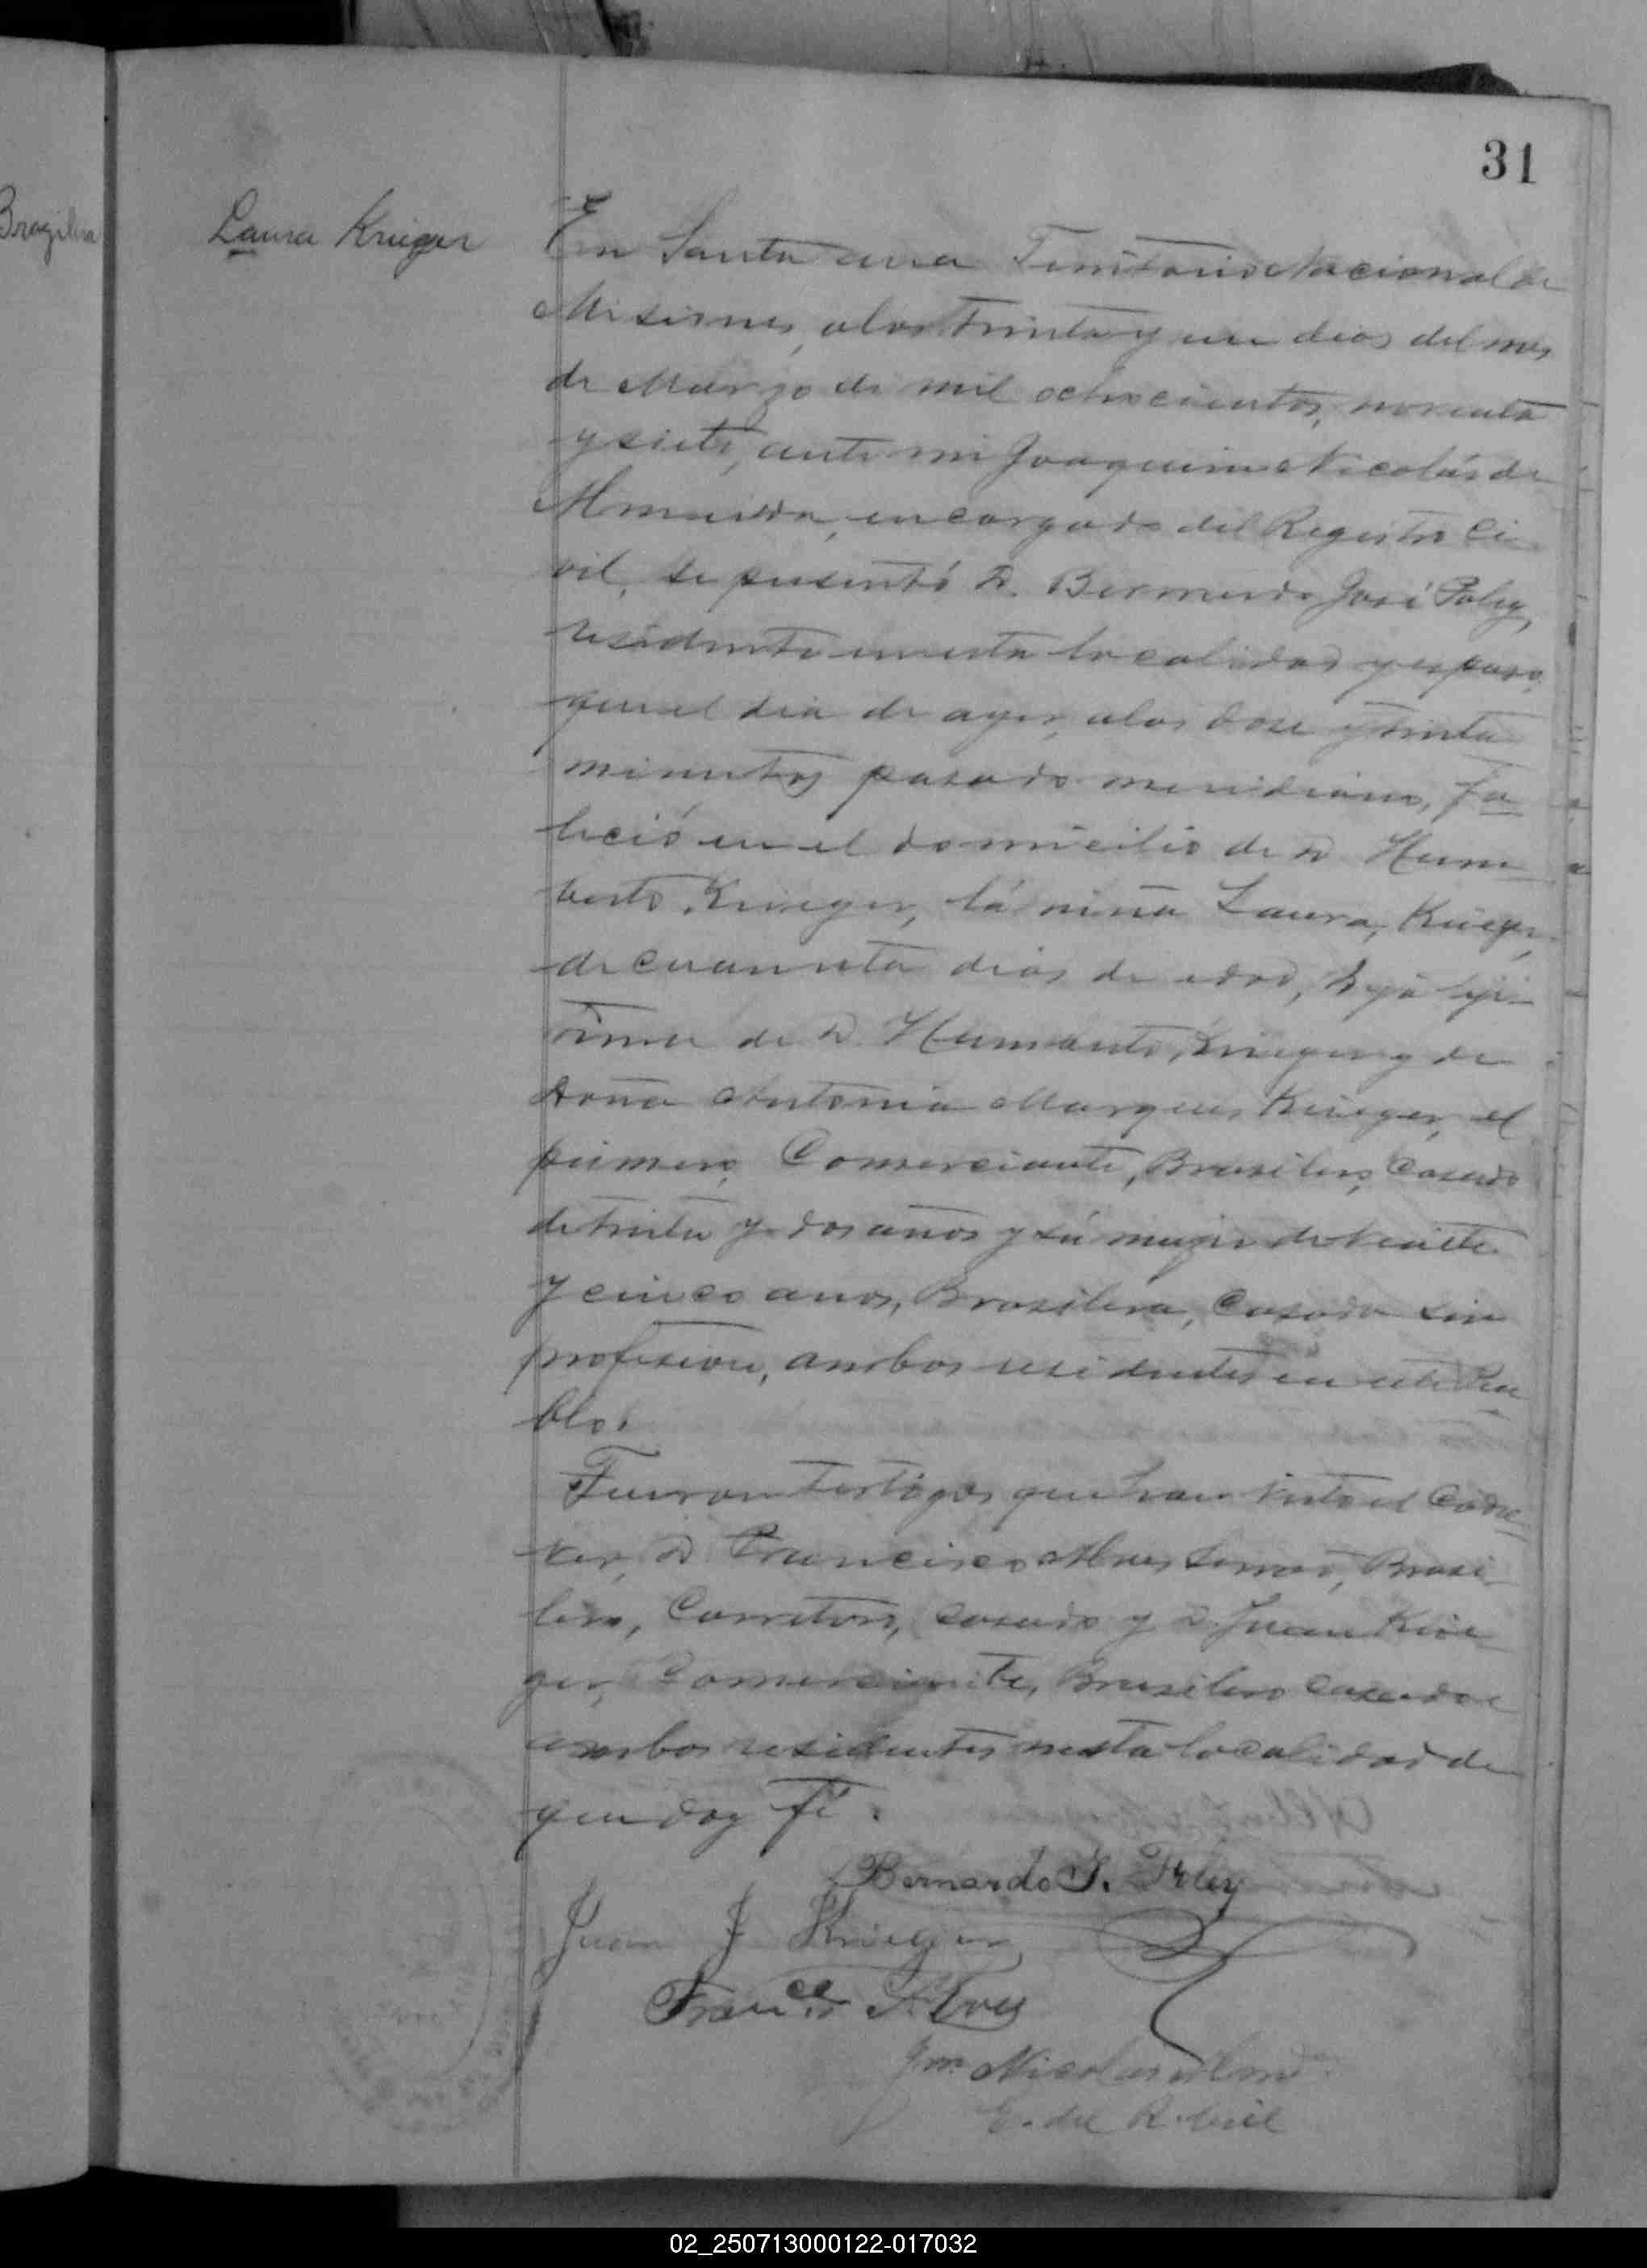 31
Brazilera
Laura Krieger
En Santa ana Territorio Nacional de
Misiones, alos trinta y un dias del mes
de Marzo de mil ochocientos, noventa
y siete, ante mi Joaquim Nicolás de
Almeida, encargado del Registro Ci
vil, se presentó D. Bernardo José
residente en esta localidad y espuso,
que el dia de ayer, alas dose y trinta
minutos pasado meridiano, fa
leció en el domicilio de D. Hum
berto Krieger, lá niña Laura, Krieger,
de cuarenta dias de edad, hija liji
tima de D. Humberto, Krieger y de
Doña Antonia Marques Krieger, el
primero, Comerciante, Brasilero, Casado
de trinta y dos años y sú mujer de veinte
y cinco anos, Brasilera, Casada sin
profesion, ambos residentes en este Pue
blo.
Fueron testigos que han visto el Cada
ver, D. Francisco Alves, Brasi
lero, casado y D. Juan Krie
ger, Comerciante, Brasilero casado e
ambos residentes nesta localidad de
que doy fé.
Bernardo J.
Juan J Krieger
Franco Alves
Jm. Nicolas Almda
E. del R. Civil
02_250713000122-017032